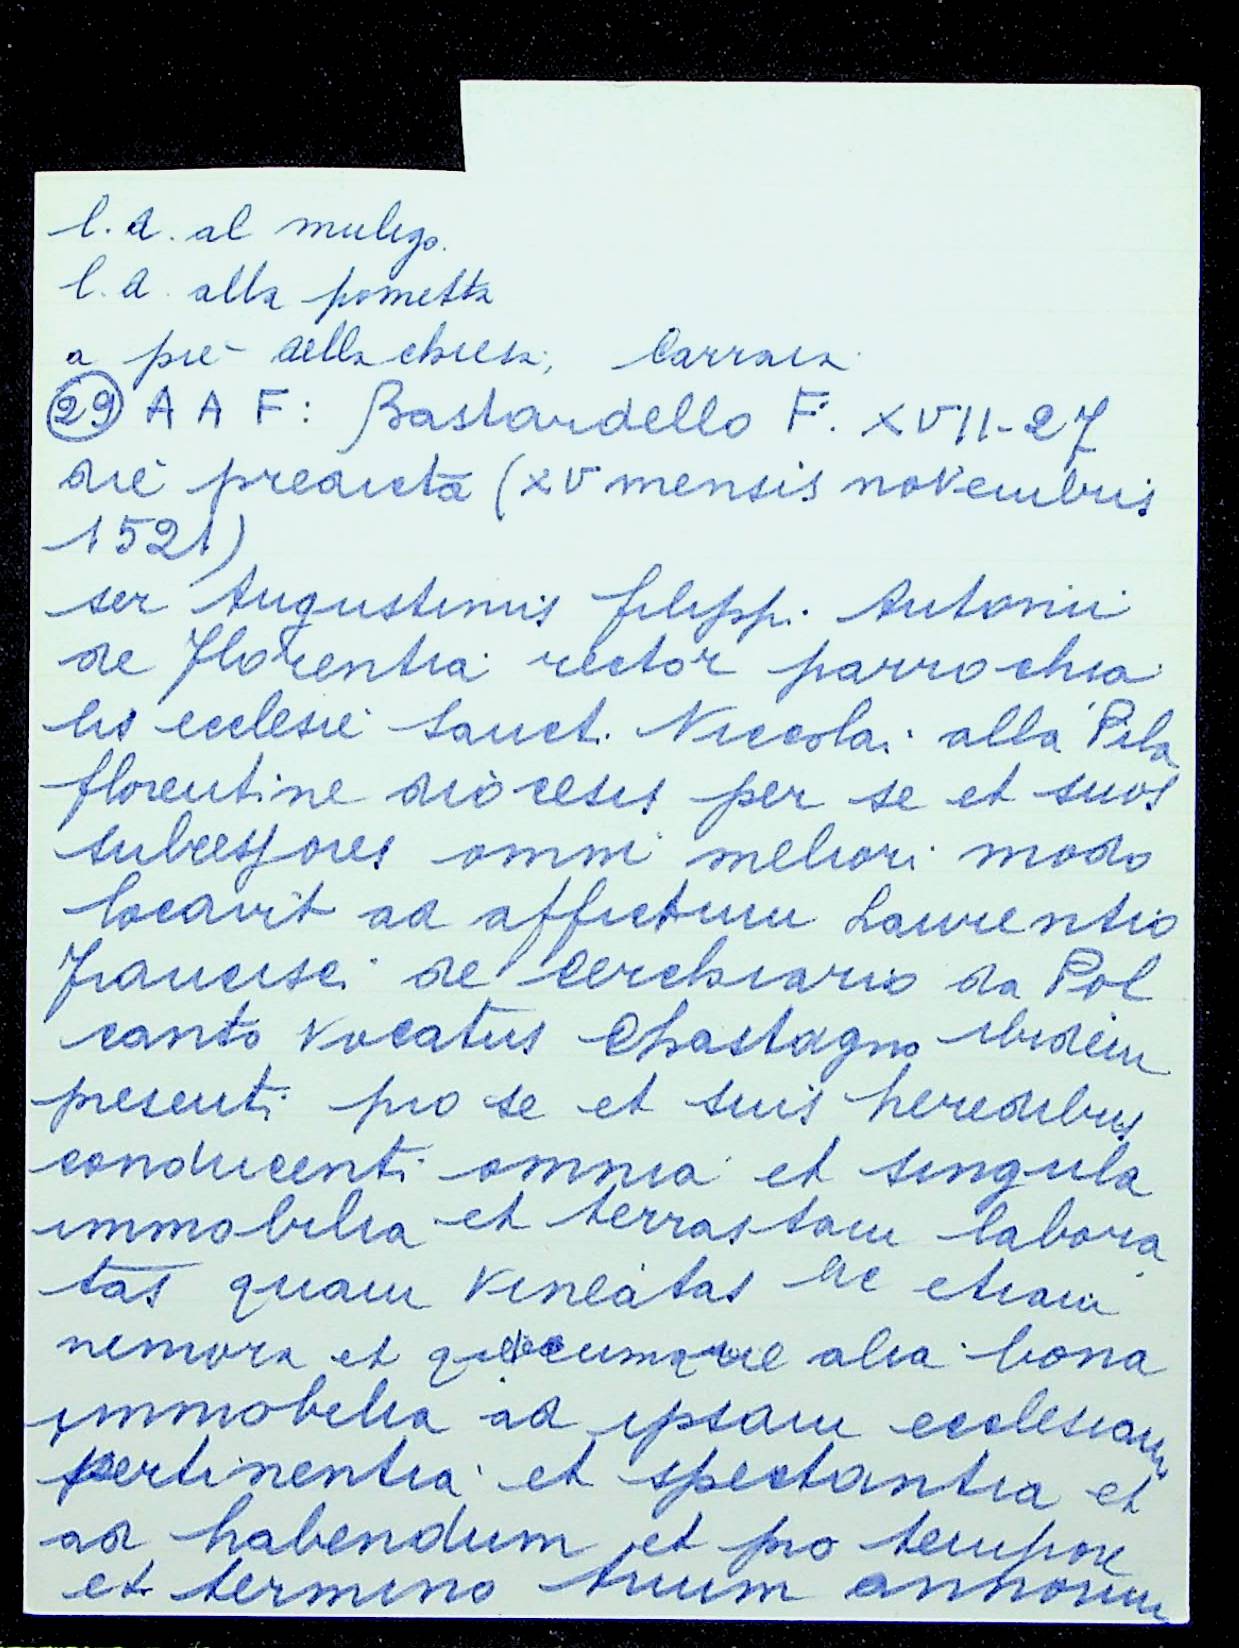 l.d. al mulino.
l.d. alla pometta
a piè della chiesa; Carraia
29 A A F: Bastardello F. XVII-27
die predicta (XV mensis novembris
1521)
ser Augustinus filippi Antonii
de Florentia rector parrochia
lis ecclesie Sancti Niccolai alla Pila
florentine diocesis per se et suos
subcessores omni meliori modo
locavit ad affictum Laurentio
Francisci de Cerchiario da Pol
canto vocatus Chastagno ibidem
presenti pro se et suis heredibus
conducenti omnia et singula
immobilia et terras tam labora
tas quam vineatas ac etiam
nemora et quecumque alia bona
immobilia ad ipsam ecclesiam
pertinentia et spectantia et
ad habendum et pro tempore
et termino trium annorum